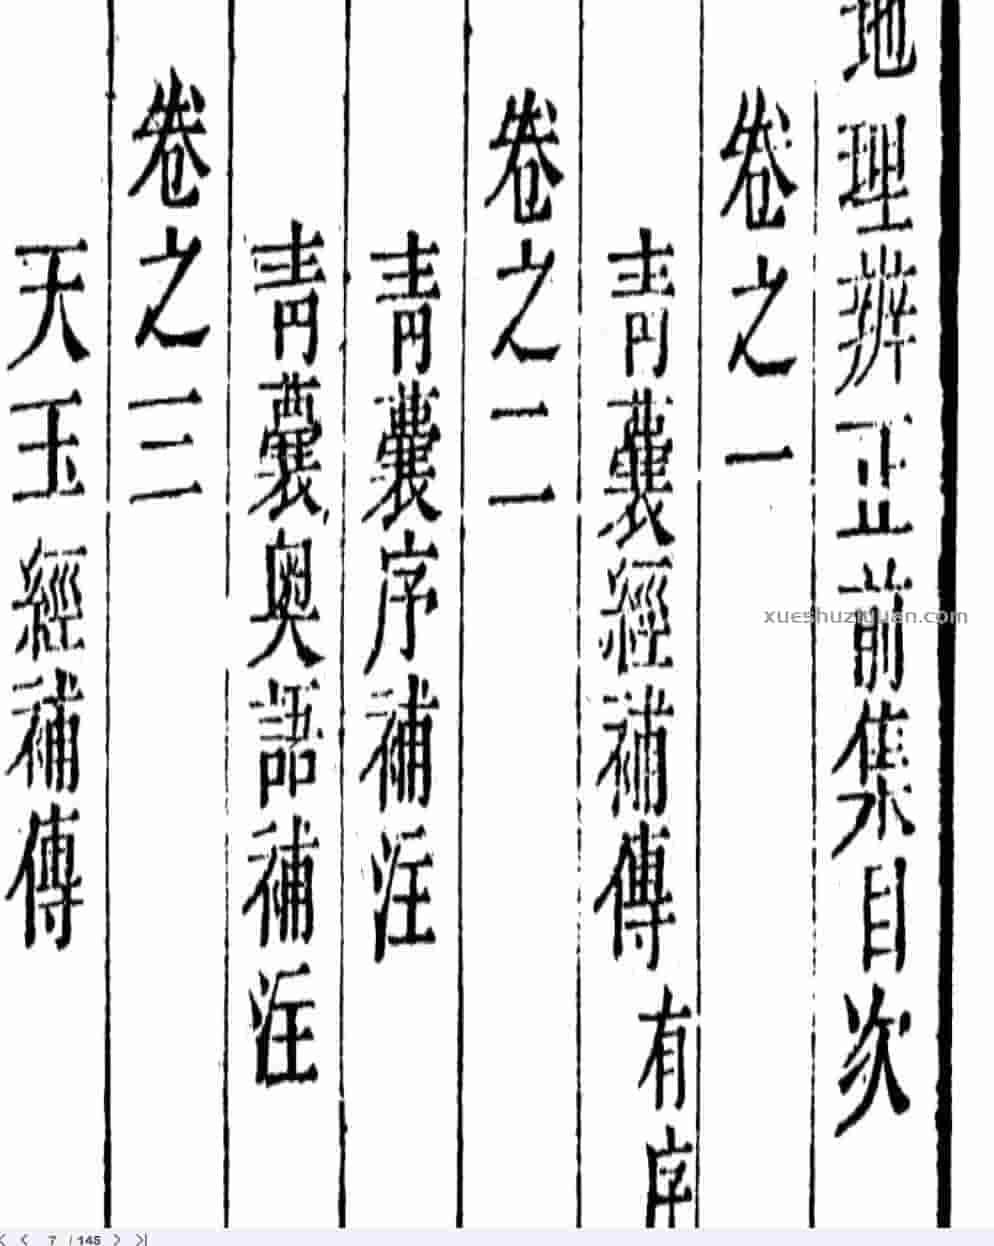 地理辨正前集目次
卷之一
青囊經補傳 有序
卷之二
青囊序補注
青囊奥語補注
卷之三
天玉經補傳
xueshuziyuan.com
7 / 145